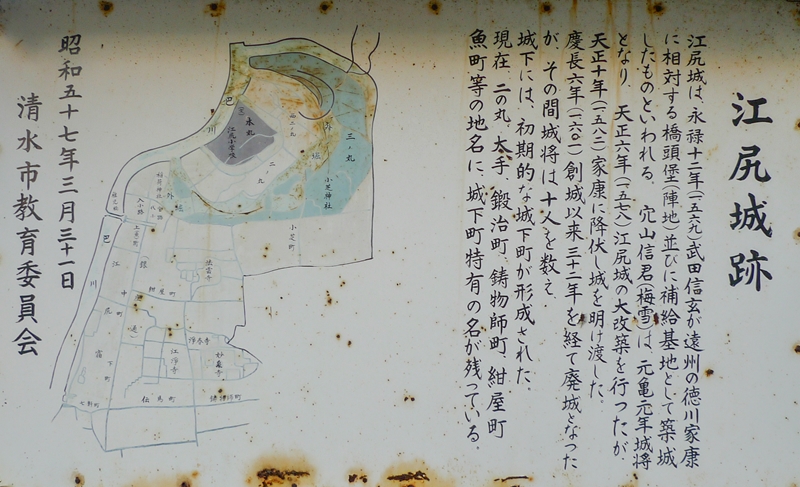 江尻城跡
江尻城は、永禄十二年(一五六九)武田信玄が遠州の徳川家康
に相対する橋頭堡(陣地)並びに補給基地として築城
したものといわれる。穴山信君(梅雪)は、元亀元年城将
となり 天正六年(一五七八)江尻城の大改築を行つたが、
天正十年(一五八二)家康に降伏し城を明け渡した。
慶長六年(一六〇一)創城以来三十二年を経て廃城となった
が、その間城将は十人を数え
城下には、初期的な城下町が形成された。
現在、二の丸、大手、鍛治町、鋳物師町、紺屋町
魚町等の地名に、城下町特有の名が残っている。
昭和五十七年三月三十一日
清水市教育委員会
巴
川
本丸
江尻小学校
二ノ丸
三ノ丸
外
堀
小芝神社
小芝町
外
堀
入小路
巴
川
江
中
町
鍛
法雲寺
紺屋町
魚町
浄春寺
江浄寺
妙泉寺
下
町
伝馬町
鋳物師町
七軒町